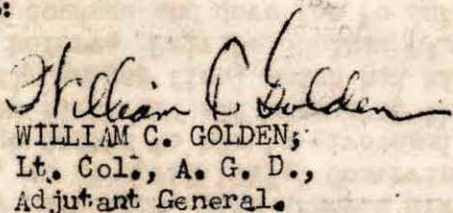 :
William C Golden
WILLIAM C. GOLDEN,
Lt. Col., A. G. D.,
Adjutant General.